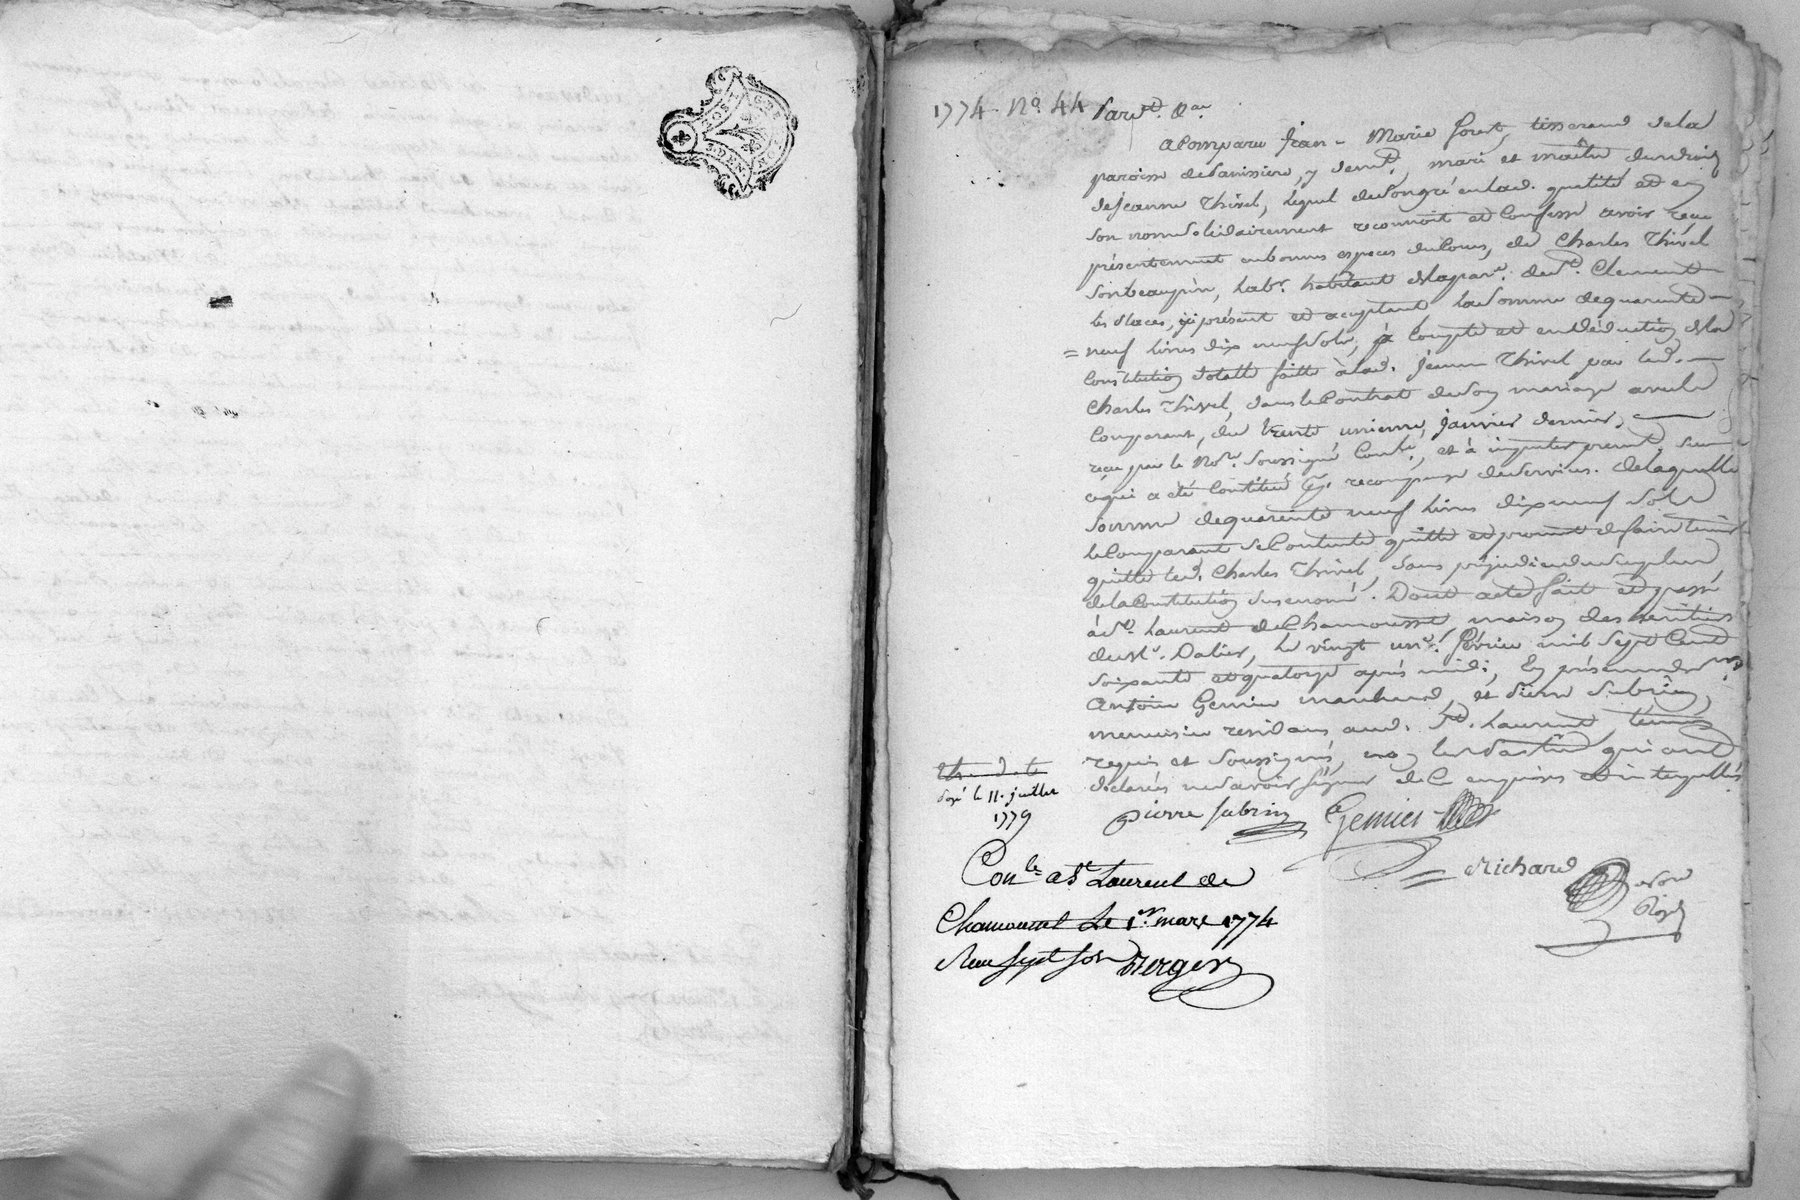 1774. N° 44 Pardt. Dau
a Comparu Jean-Marie Forest, tisserand de la
paroisse de Savissiere, y demt. mari et maître des droits
de Jeanne Thivel, lequel de son gré en lad. qualité et en
son nom solidairement reconnoit et confesse avoir reçu
présentement en bonnes espèces du Cours, de Charles Thivel
son beaupere, labr. habitant de la parr. de St. Clement
les Places, ici présent et acceptant la somme de quarente
neuf livres dix neuf sols, à Compte et en déduction de la
Constitution dotalle faitte à lad. Jeanne Thivel par led.
Charles Thivel, dans le Contrat de son mariage avec le
Comparant, du trente unieme janvier dernier,
reçu par le Nore. soussigné Contlé, et à imputer premt. sur
ce qui a été Constitué en recompense de services. de laquelle
somme de quarente neuf livres dix neuf sols
le Comparant se Contente quitte et promet de faire tenir
quitte led. Charles Thivel, sans préjudice du surplus
de la Constitution susenoncé. Dont acte fait et passé
à St. Laurent de Chamousset, maison des heritiers
du Sr. Dalier, le vingt une. fevrier mil sept Cent
soixante et quatorze après midi; En présence de sr
Antoine Gemier marchand, et Pierre Subrin,
menuisier residans aud. St. Laurent, temoins
requis et soussignés, non lesd. parties qui ont
declarés ne savoir signer de ce enquises et interpellés
1779
pierre subrin Gemier
Richard
Con.le a St Laurent de
Chamousset Le 1er mars 1774
Reçu sept sols Berger